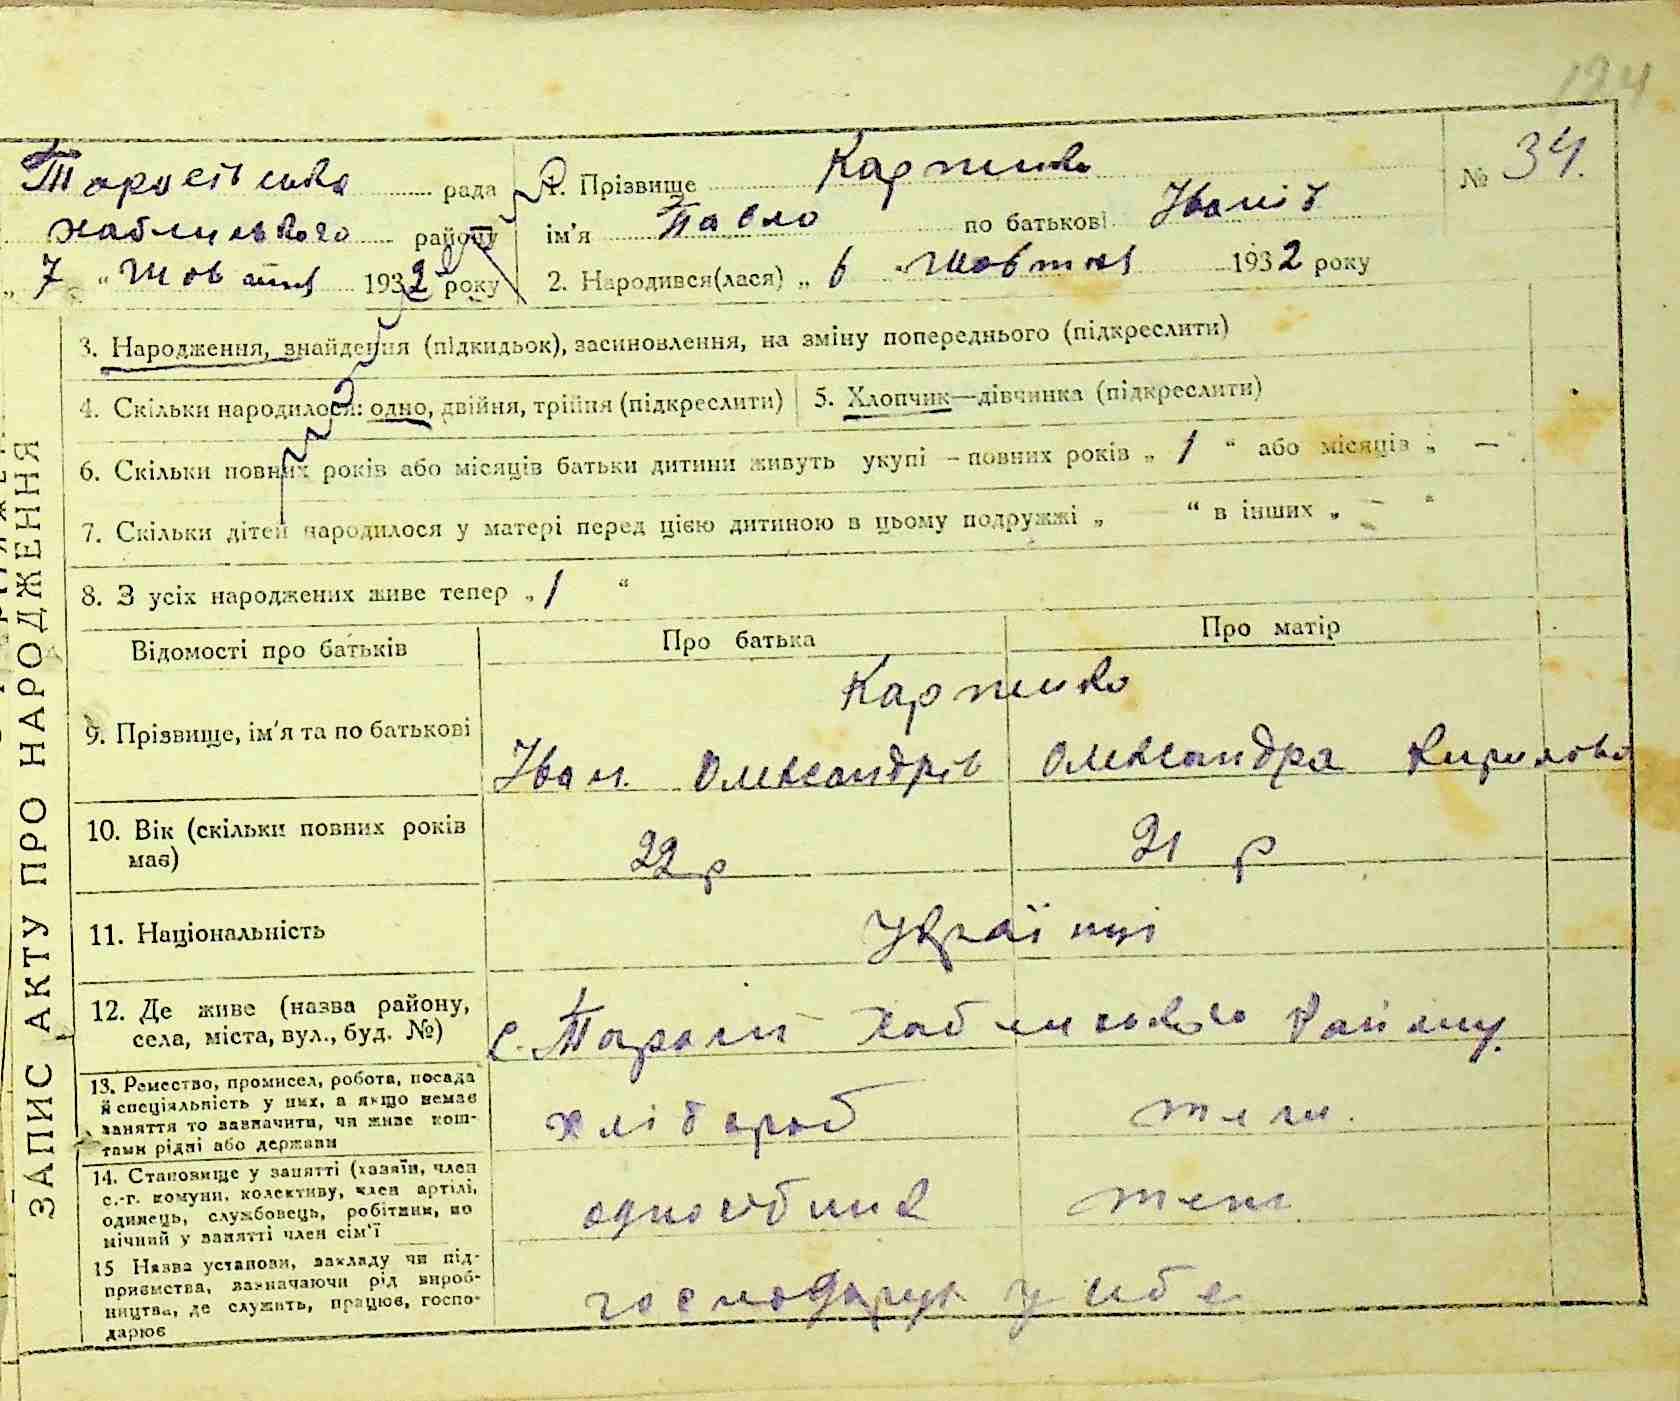 124
Тарасівська рада
Хабленського району
„ 7 „ Жовтня 1932 року
1. Прізвище № 34.
ім'я Павло по батькові Іванів
2. Народився(лася) „ 6 „ Жовтня 1932 року
ЗАПИС АКТУ ПРО НАРОДЖЕННЯ
3. Народження, знайдення (підкидьок), засиновлення, на зміну попереднього (підкреслити)
4. Скільки народилося: одно, двійня, трійня (підкреслити) 5. Хлопчик—дівчинка (підкреслити)
6. Скільки повних років або місяців батьки дитини живуть укупі – повних років „ 1 “ або місяців „ —
7. Скільки дітей народилося у матері перед цією дитиною в цьому подружжі „ “ в інших „ – “
8. З усіх народжених живе тепер „ 1 “
Відомості про батьків Про батька Про матір
9. Прізвище, ім'я та по батькові
Іван Олександрів Олександра Кирилова
10. Вік (скільки повних років
має) 22 р 21 р
11. Національність Українці
12. Де живе (назва району,
села, міста, вул., буд. №) с. Хабленського району.
13. Ремество, промисел, робота, посада
й спеціяльність у них, а якщо немає
заняття то зазначити, чи живе кош-
тами рідні або держави хлібороб
14. Становище у занятті (хазяїн, член
с.-г. комуни, колективу, член артілі,
одинець, службовець, робітник, по
мічний у занятті член сім'ї одноосібник
15 Назва установи, закладу чи під-
приємства, зазначаючи рід вироб-
ництва, де служить, працює, госпо-
дарює господарує у себе